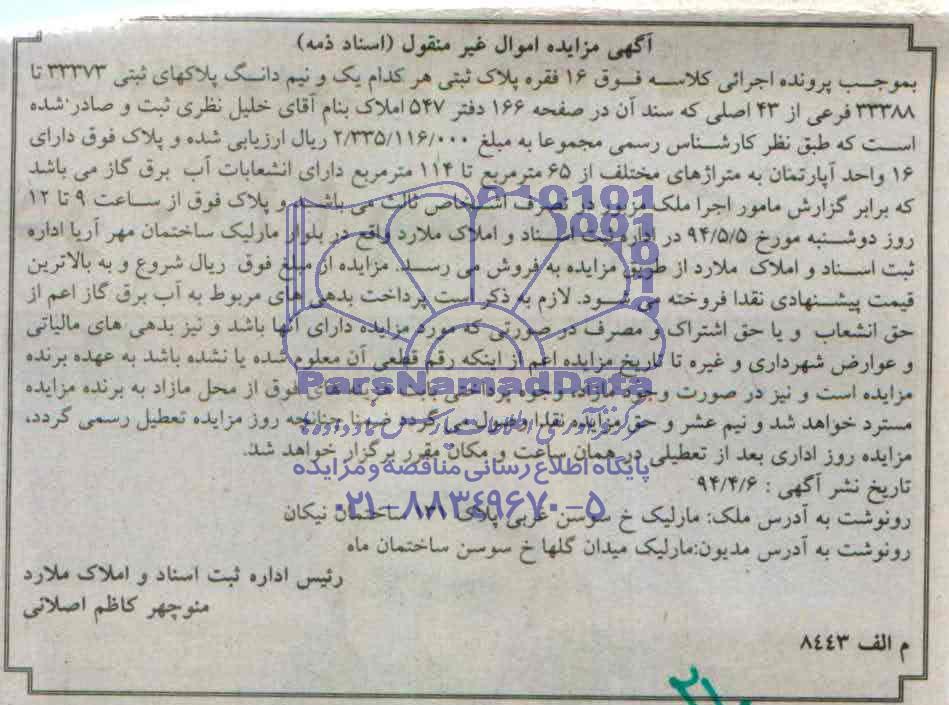 آگهی مزایده اموال غیر منقول (اسناد ذمه)
بموجب پرونده اجرائی کلاسه فوق ۱۶ فقره پلاک ثبتی هر کدام یک و نیم دانگ پلاکهای ثبتی ۳۳۳۷۳ تا
۳۳۳۸۸ فرعی از ۴۳ اصلی که سند آن در صفحه ۱۶۶ دفتر ۵۴۷ املاک بنام آقای خلیل نظری ثبت و صادر شده
است که طبق نظر کارشناس رسمی مجموعا به مبلغ ۲/۳۳۵/۱۱۶/۰۰۰ ریال ارزیابی شده و پلاک فوق دارای
۱۶ واحد آپارتمان به متراژهای مختلف از ۶۵ مترمربع تا ۱۱۴ مترمربع دارای انشعابات آب برق گاز می باشد
که برابر گزارش مامور اجرا ملک مزبور در تصرف اشخاص ثالث می باشد و پلاک فوق از ساعت ۹ تا ۱۲
روز دوشنبه مورخ ۹۴/۵/۵ در اداره ثبت اسناد و املاک ملارد واقع در بلوار مارلیک ساختمان مهر آریا اداره
ثبت اسناد و املاک ملارد از طریق مزایده به فروش می رسد. مزایده از مبلغ فوق ریال شروع و به بالاترین
قیمت پیشنهادی نقدا فروخته می شود. لازم به ذکر است پرداخت بدهی های مربوط به آب برق گاز اعم از
حق انشعاب و یا حق اشتراک و مصرف در صورتی که مورد مزایده دارای آنها باشد و نیز بدهی های مالیاتی
و عوارض شهرداری و غیره تا تاریخ مزایده اعم از اینکه رقم قطعی آن معلوم شده یا نشده باشد به عهده برنده
مزایده است و نیز در صورت وجود مازاد، وجوه پرداختی بابت هزینه های فوق از محل مازاد به برنده مزایده
مسترد خواهد شد و نیم عشر و حق مزایده نقدا وصول می گردد ضمنا چنانچه روز مزایده تعطیل رسمی گردد،
مزایده روز اداری بعد از تعطیلی در همان ساعت و مکان مقرر برگزار خواهد شد.
تاریخ نشر آگهی : ۹۴/۴/۶
رونوشت به آدرس ملک: مارلیک خ سوسن غربی پلاک ساختمان نیکان
رونوشت به آدرس مدیون:مارلیک میدان گلها خ سوسن ساختمان ماه
رئیس اداره ثبت اسناد و املاک ملارد
منوچهر کاظم اصلانی
م الف ۸۴۴۳
ParsNamadData
پایگاه اطلاع رسانی مناقصه و مزایده
۰۲۱-۸۸۳۴۹۶۷۰-۵